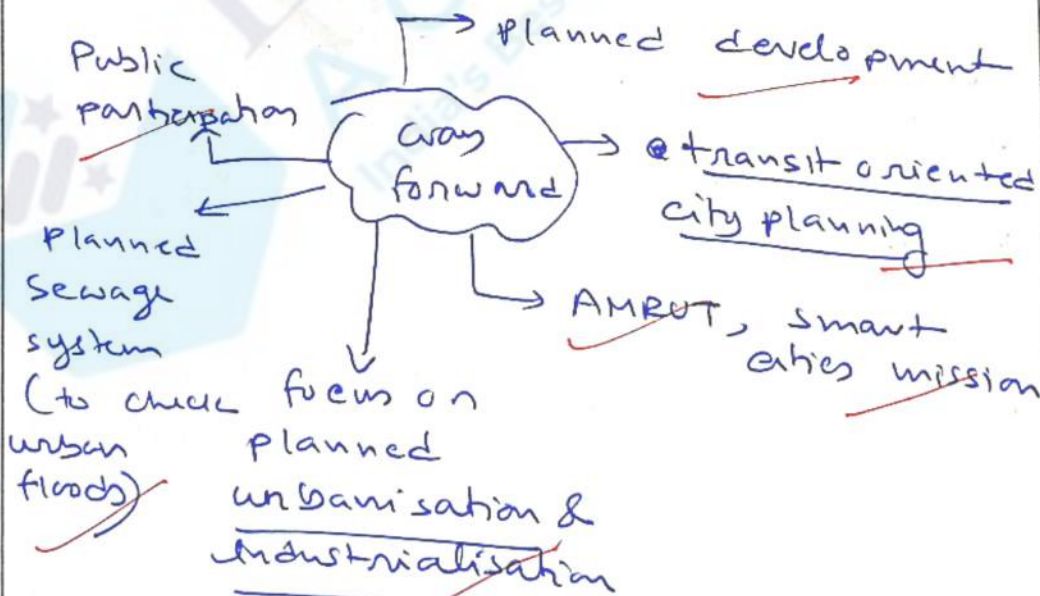 way
forward
Planned development
transit oriented
city planning
AMRUT, smart
cities mission
focus on
planned
urbanisation &
industrialisation
Planned
sewage
system
(to check
urban
floods)
Public
participation
India's